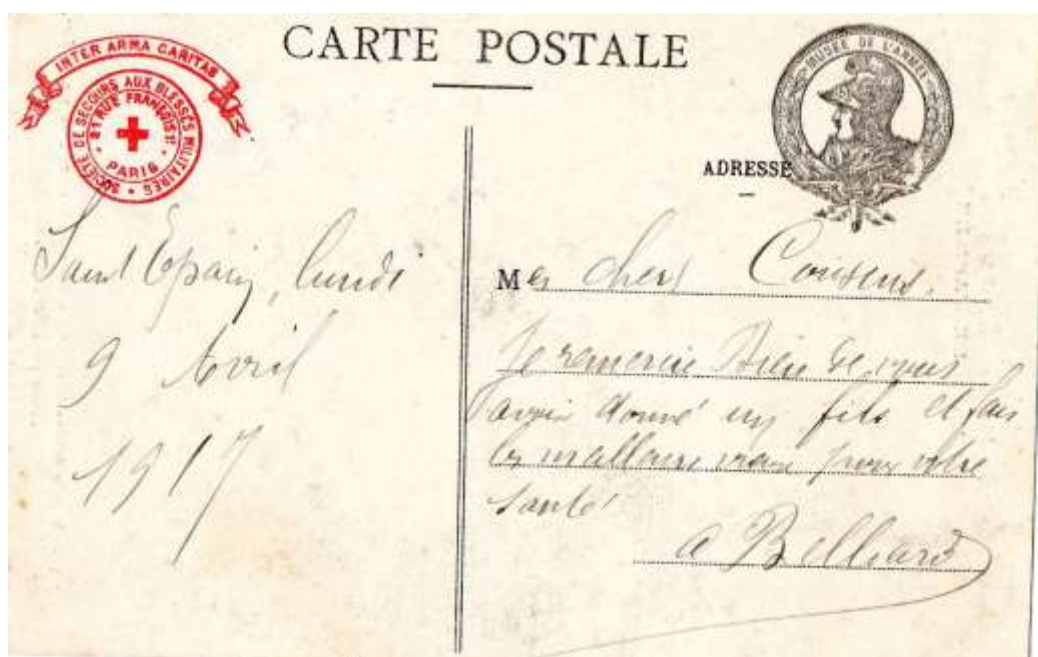 CARTE POSTALE
INTER ARMA CARITAS
SOCIÉTÉ DE SECOURS AUX BLESSÉS MILITAIRES
21 RUE FRANÇOIS 1ER
PARIS
MUSÉE DE L'ARMÉE
ADRESSE
Saint Epain, lundi
9 Avril
1917
Mes chers Cousins.
Je remercie Dieu de vous
avoir donné un fils et fais
les meilleurs vœux pour votre
santé
a Belliard